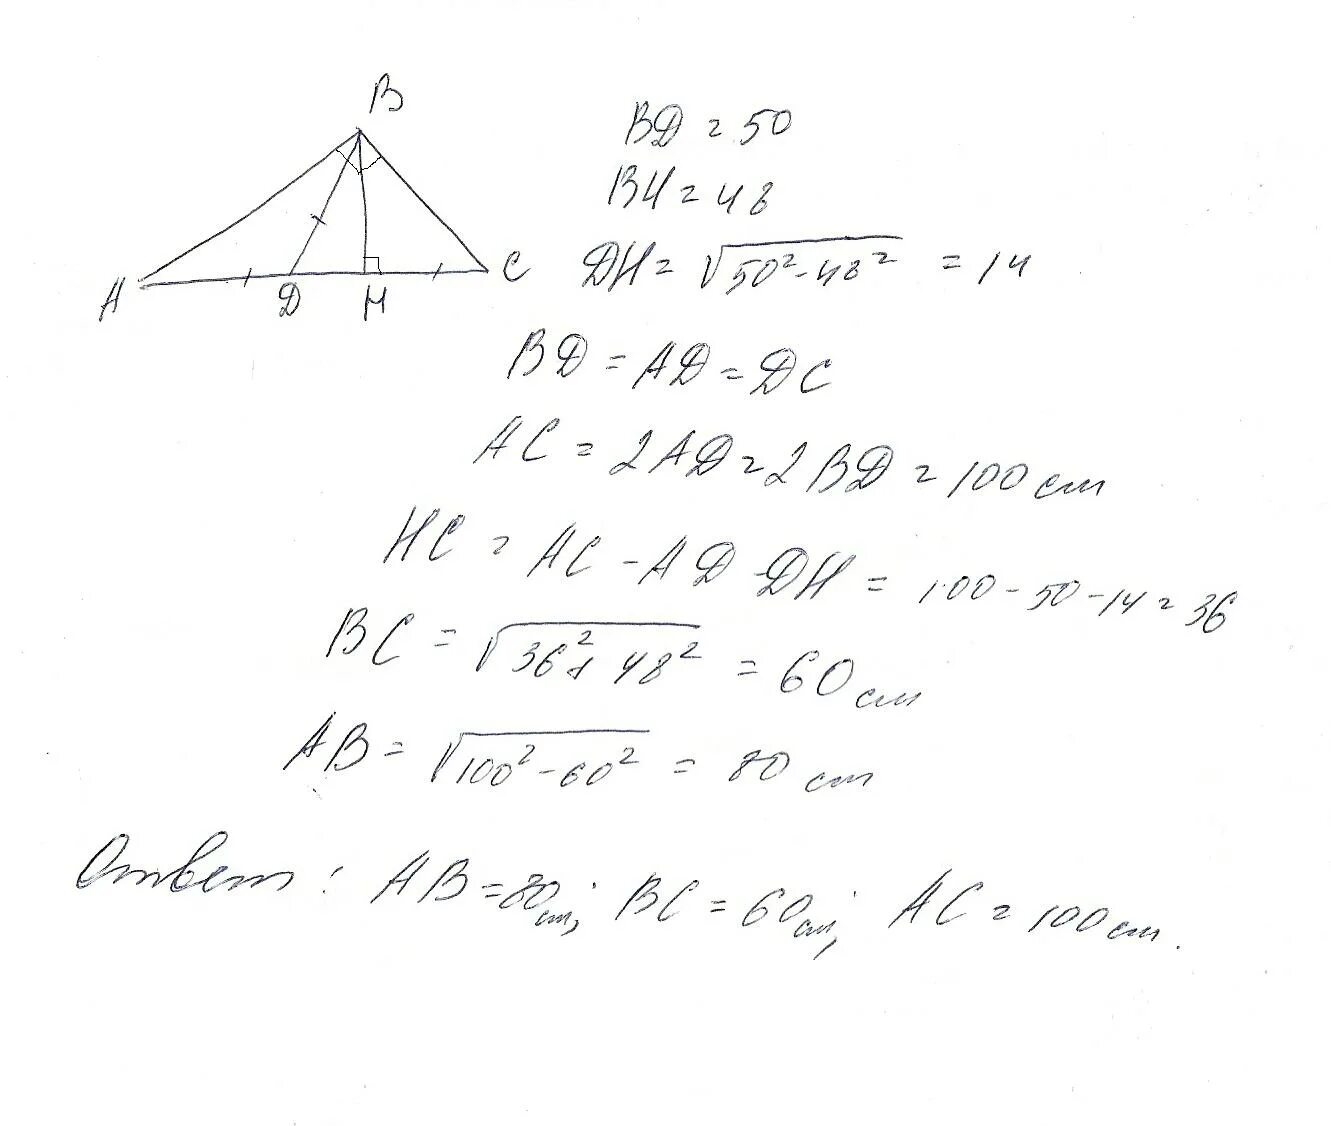 B
A
D
H
C
BD = 50
BH = 48
DH = √50² - 48² = 14
BD = AD = DC
AC = 2AD = 2BD = 100 см
HC = AC - AD - DH = 100 - 50 - 14 = 36
BC = √36² + 48² = 60 см
AB = √100² - 60² = 80 см
Ответ: AB = 80 см; BC = 60 см; AC = 100 см.